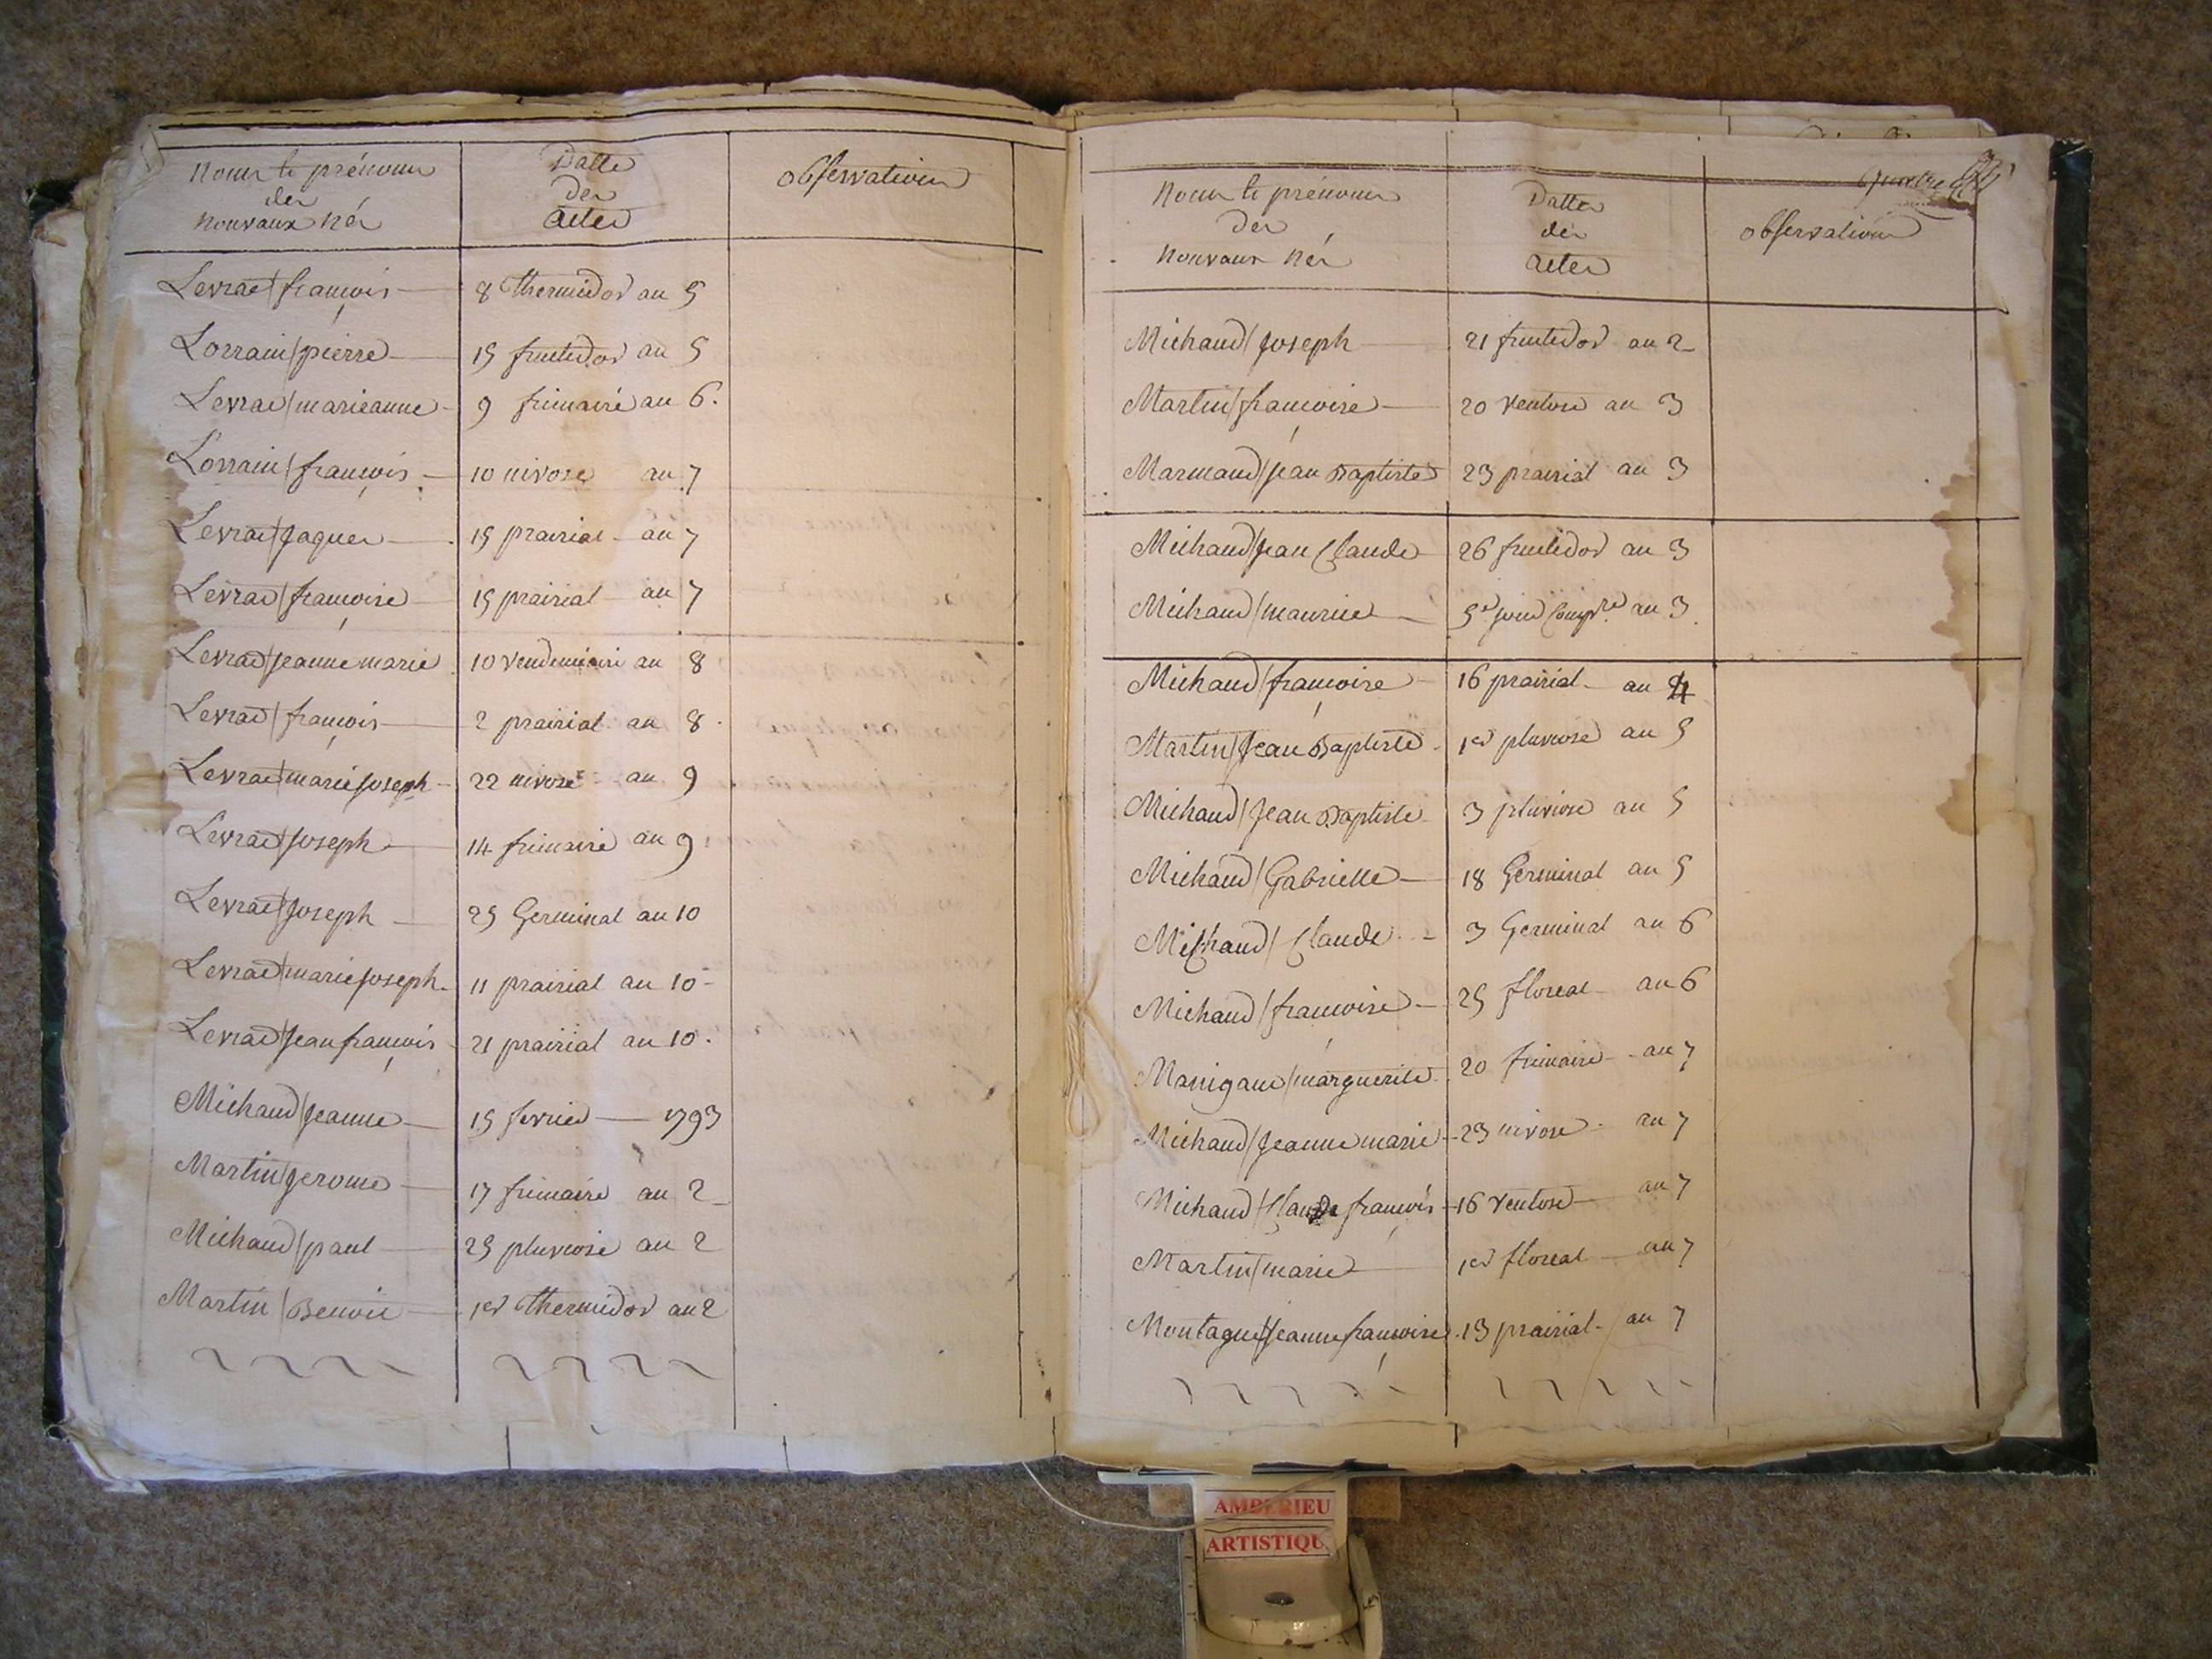 Noms & prénoms
des
nouvaux nés
Datte
des
actes
observations
Levrat/françois 8 thermidor an 5
Lorrain/pierre 15 fructidor an 5
Levrat/marieanne 9 frimaire an 6.
Lorrain/françois 10 nivose an 7
Levrat/Jaques 15 prairial an 7
Levrat/françoise 15 prairial an 7
Levrat/Jeanne marie 10 vendemiaire an 8
Levrat/françois 2 prairial an 8
Levrat/marie Joseph 22 nivose an 9
Levrat/Joseph 14 frimaire an 9
Levrat/Joseph 25 Germinal an 10
Levrat/marie Joseph 11 prairial an 10
Levrat/Jean françois 21 prairial an 10.
Michaud/Jeanne 15 fevrier 1793
Martin/Jerome 17 frimaire an 2
Michaud/paul 25 pluviose an 2
Martin/Benoit 1er thermidor an 2
Noms & prénoms
des
nouvaux nés
Datte
des
actes
quatre
observations
Michaud/Joseph 21 fructidor an 2
Martin/françoise 20 ventose an 3
Marmand/Jean Baptiste 23 prairial an 3
Michaud/Jean Claude 26 fructidor an 3
Michaud/maurice 5e jour Compre an 3.
Michaud/françoise 16 prairial an 4
Martin/Jean Baptiste 1er pluviose an 5
Michaud/Jean Baptiste 3 pluviose an 5
Michaud/Gabrielle 18 Germinal an 5
Michaud/Claude 3 Germinal an 6
Michaud/françoise 25 floreal an 6
Manigand/marguerite 20 frimaire an 7
Michaud/Jeanne marie 23 nivose an 7
Michaud/Claude françois 16 ventose an 7
Martin/marie 1er floreal an 7
Montagne/Jeanne françoise 13 prairial an 7
AMBERIEU
ARTISTIQU